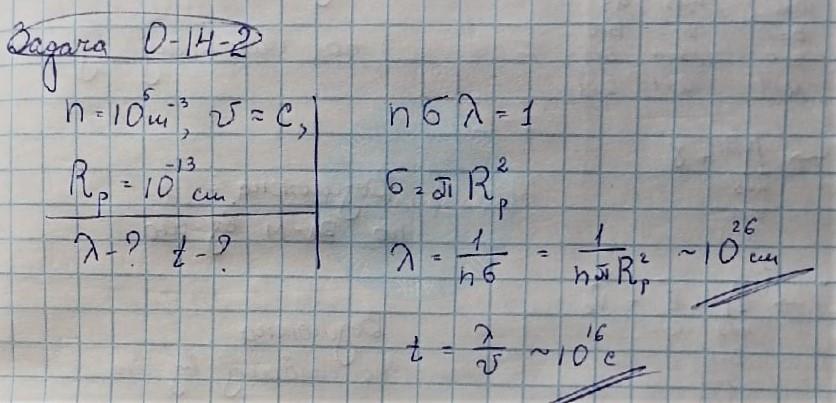 Задача 0-14-2
n = 10⁵ м⁻³, v ≈ c,
R_p = 10⁻¹³ см
λ - ? t - ?
n σ λ = 1
σ = π R_p²
λ = 1/(nσ) = 1/(nπR_p²) ~ 10²⁶ см
t = λ/v ~ 10¹⁶ c